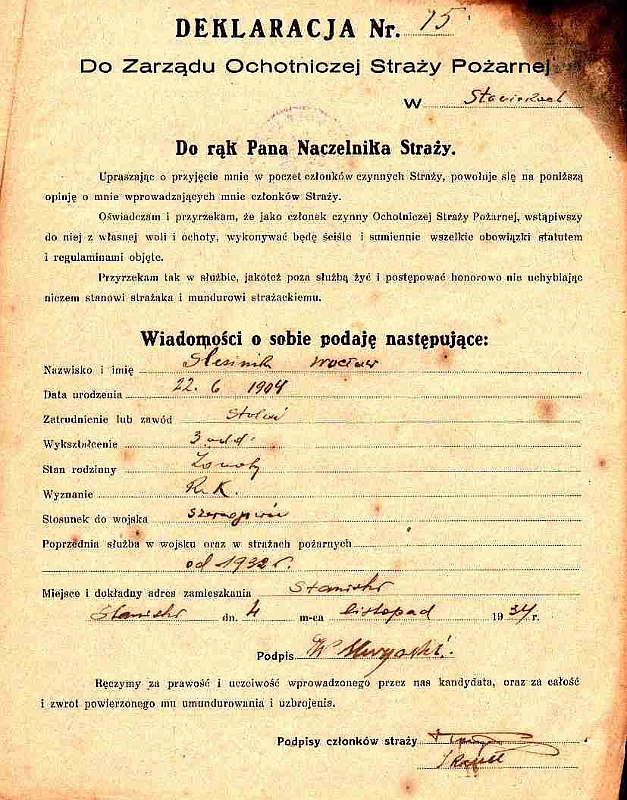 DEKLARACJA Nr. 15
Do Zarządu Ochotniczej Straży Pożarnej
w
Do rąk Pana Naczelnika Straży.
Upraszając o przyjęcie mnie w poczet członków czynnych Straży, powołuję się na poniższą
opinję o mnie wprowadzających mnie członków Straży.
Oświadczam i przyrzekam, że jako członek czynny Ochotniczej Straży Pożarnej, wstąpiwszy
do niej z własnej woli i ochoty, wykonywać będę ściśle i sumiennie wszelkie obowiązki statutem
i regulaminami objęte.
Przyrzekam tak w służbie, jakoteż poza służbą żyć i postępować honorowo nie uchybiając
niczem stanowi strażaka i mundurowi strażackiemu.
Wiadomości o sobie podaję następujące:
Nazwisko i imię
Data urodzenia 22. 6 1904
Zatrudnienie lub zawód
Wykształcenie 3 odd.
Stan rodzinny
Wyznanie R. K.
Stosunek do wojska
Poprzednia służba w wojsku oraz w strażach pożarnych
od 1932 r.
Miejsce i dokładny adres zamieszkania
dn. 4 m-ca listopad 1934 r.
Podpis
Ręczymy za prawość i uczciwość wprowadzonego przez nas kandydata, oraz za całość
i zwrot powierzonego mu umundurowania i uzbrojenia.
Podpisy członków straży